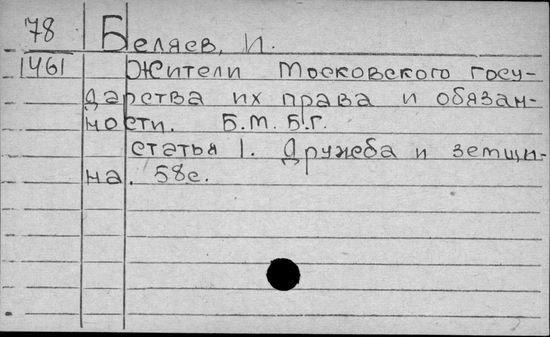 78 Беляев, И.
1461 Жители Московского госу-
дарства их права и обязан-
ности. Б.М. Б.Г.
статья 1. Дружеба и земщи-
на. 58с.